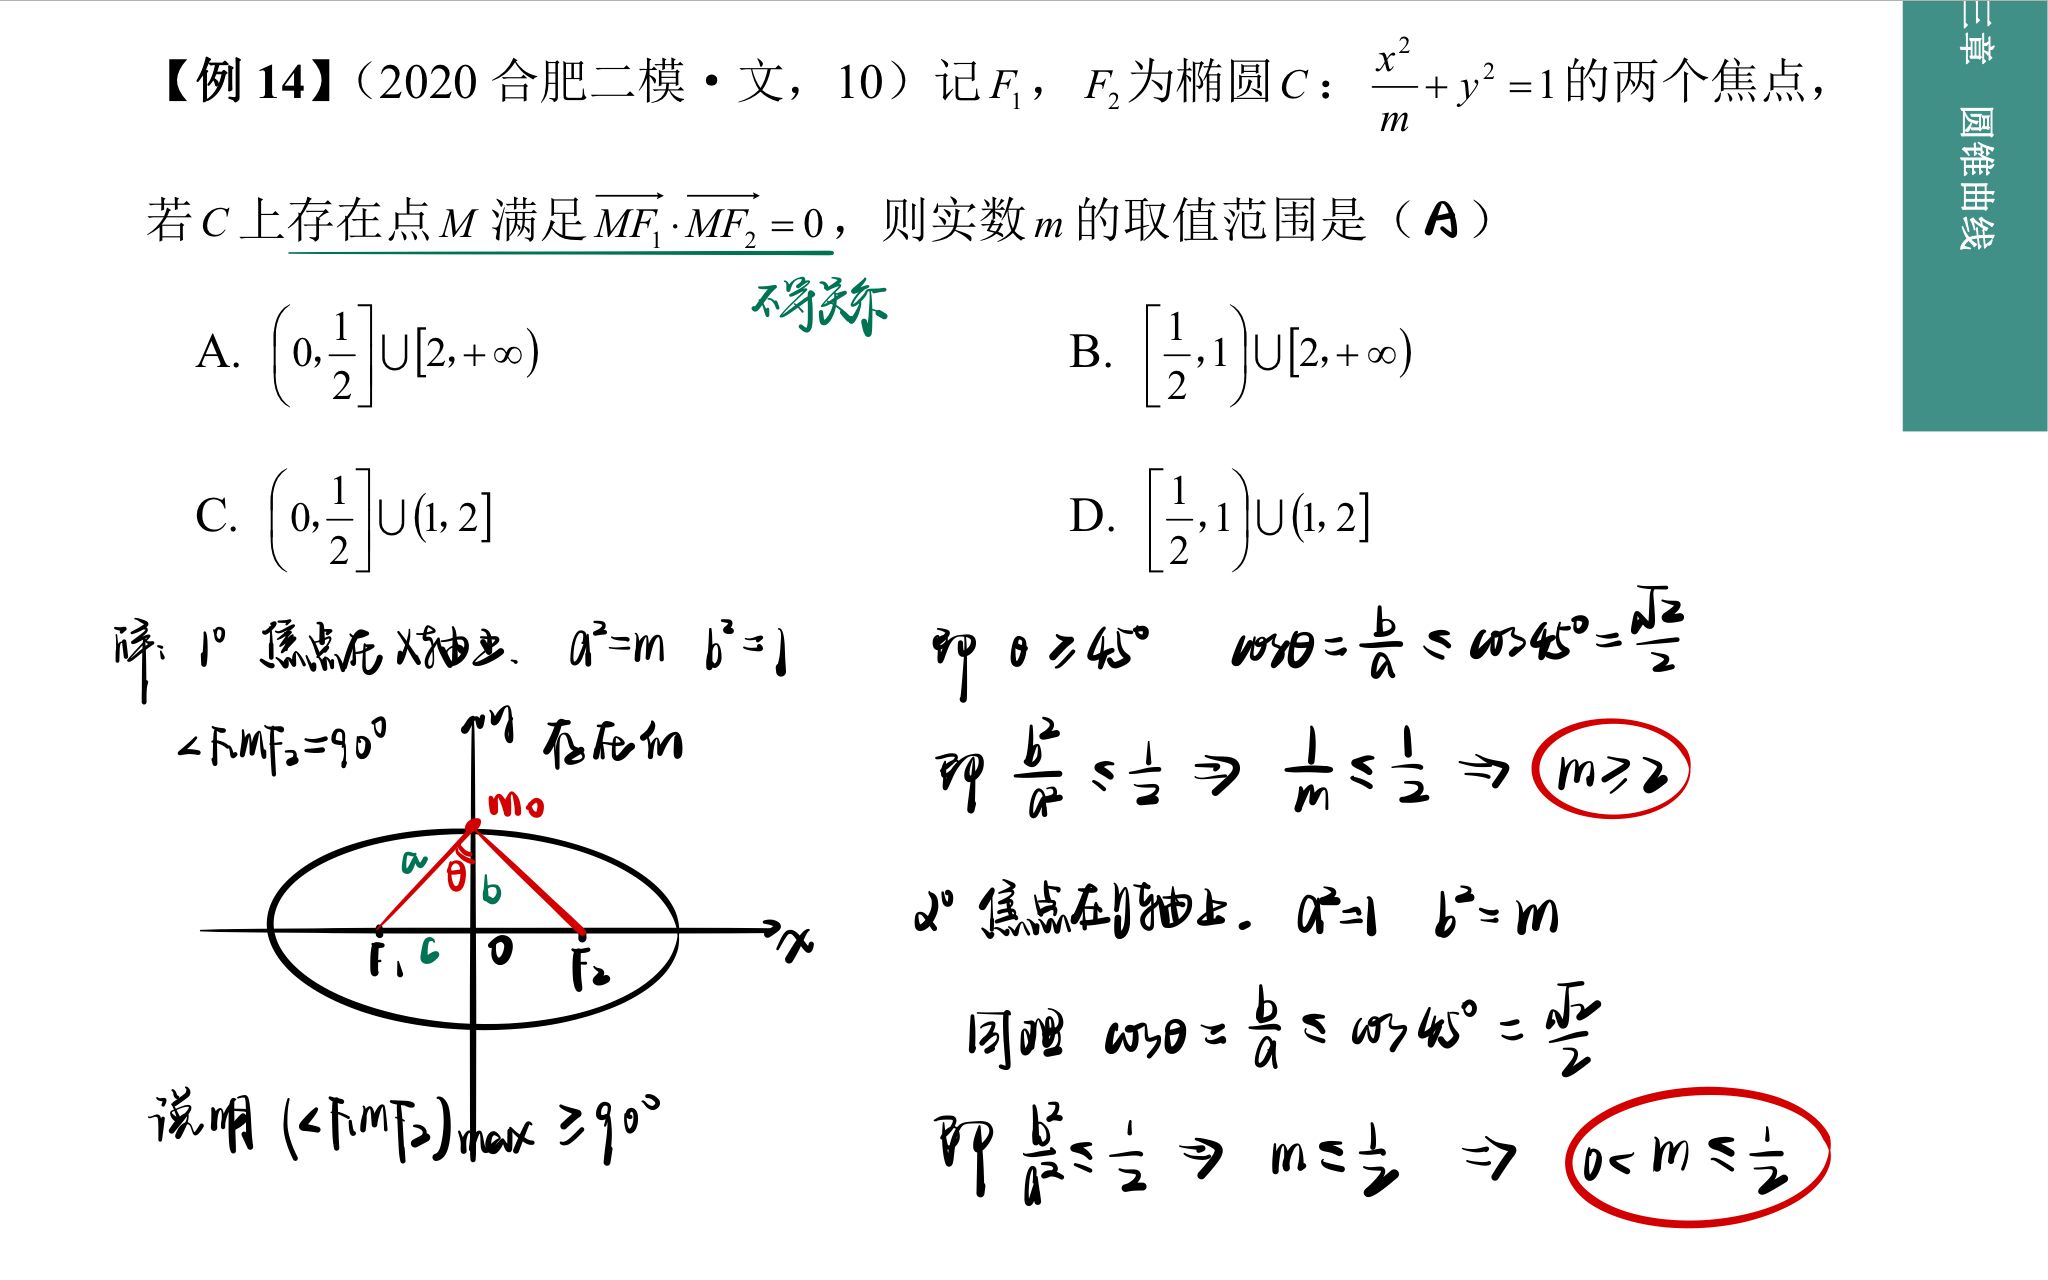 三章 圆锥曲线
【例 14】(2020 合肥二模·文,10)记 F₁, F₂ 为椭圆 C: x²/m + y² = 1 的两个焦点,
若 C 上存在点 M 满足 MF₁·MF₂ = 0, 则实数 m 的取值范围是(A)
不等关系
A. (0, 1/2]∪[2, +∞)
B. [1/2, 1)∪[2, +∞)
C. (0, 1/2]∪(1, 2]
D. [1/2, 1)∪(1, 2]
解: 1° 焦点在x轴上. a²=m b²=1
∠F₁MF₂=90° 存在的
y
M₀
a θ b
F₁ c O F₂ x
说明 (∠F₁MF₂)max ≥90°
即 θ ≥ 45° cosθ = b/a ≤ cos45° = √2/2
即 b²/a² ≤ 1/2 ⇒ 1/m ≤ 1/2 ⇒ m≥2
2° 焦点在y轴上. a²=1 b²=m
同理 cosθ = b/a ≤ cos45° = √2/2
即 b²/a² ≤ 1/2 ⇒ m ≤ 1/2 ⇒ 0< m ≤ 1/2